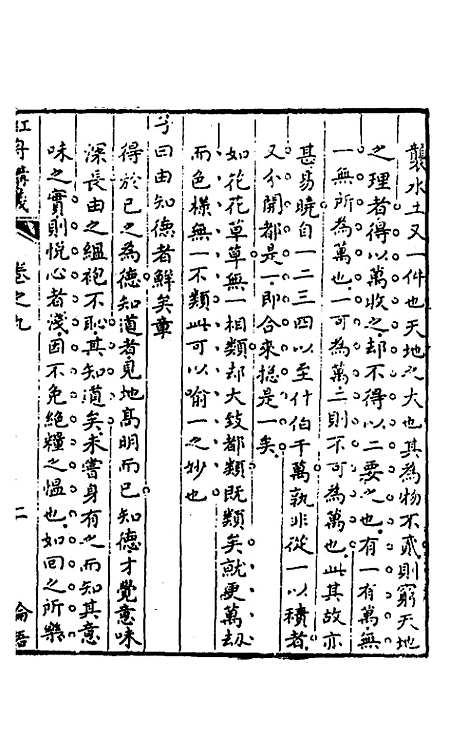 襲水土又一件也天地之大也其為物不貳則窮天地
之理者得以萬收之却不得以二要之也有一有萬無
一無所為萬也一可為萬二則不可為萬也此其故亦
甚易曉自一二三四以至什伯千萬孰非從一以積者
又分開都是一即合來揔是一矣
如花花草草無一相類却大致都類既類矣就更萬劫
而色樣無一不類此可以喻一之妙也
子曰由知德者鮮矣章
得於己之為德知道者見地高明而已知德才覺意味
深長由之縕袍不恥其知道矣未嘗身有之而知其意
味之實則悦心者淺因不免絕糧之愠也如回之所樂
虹舟講義
卷之九
二
論語